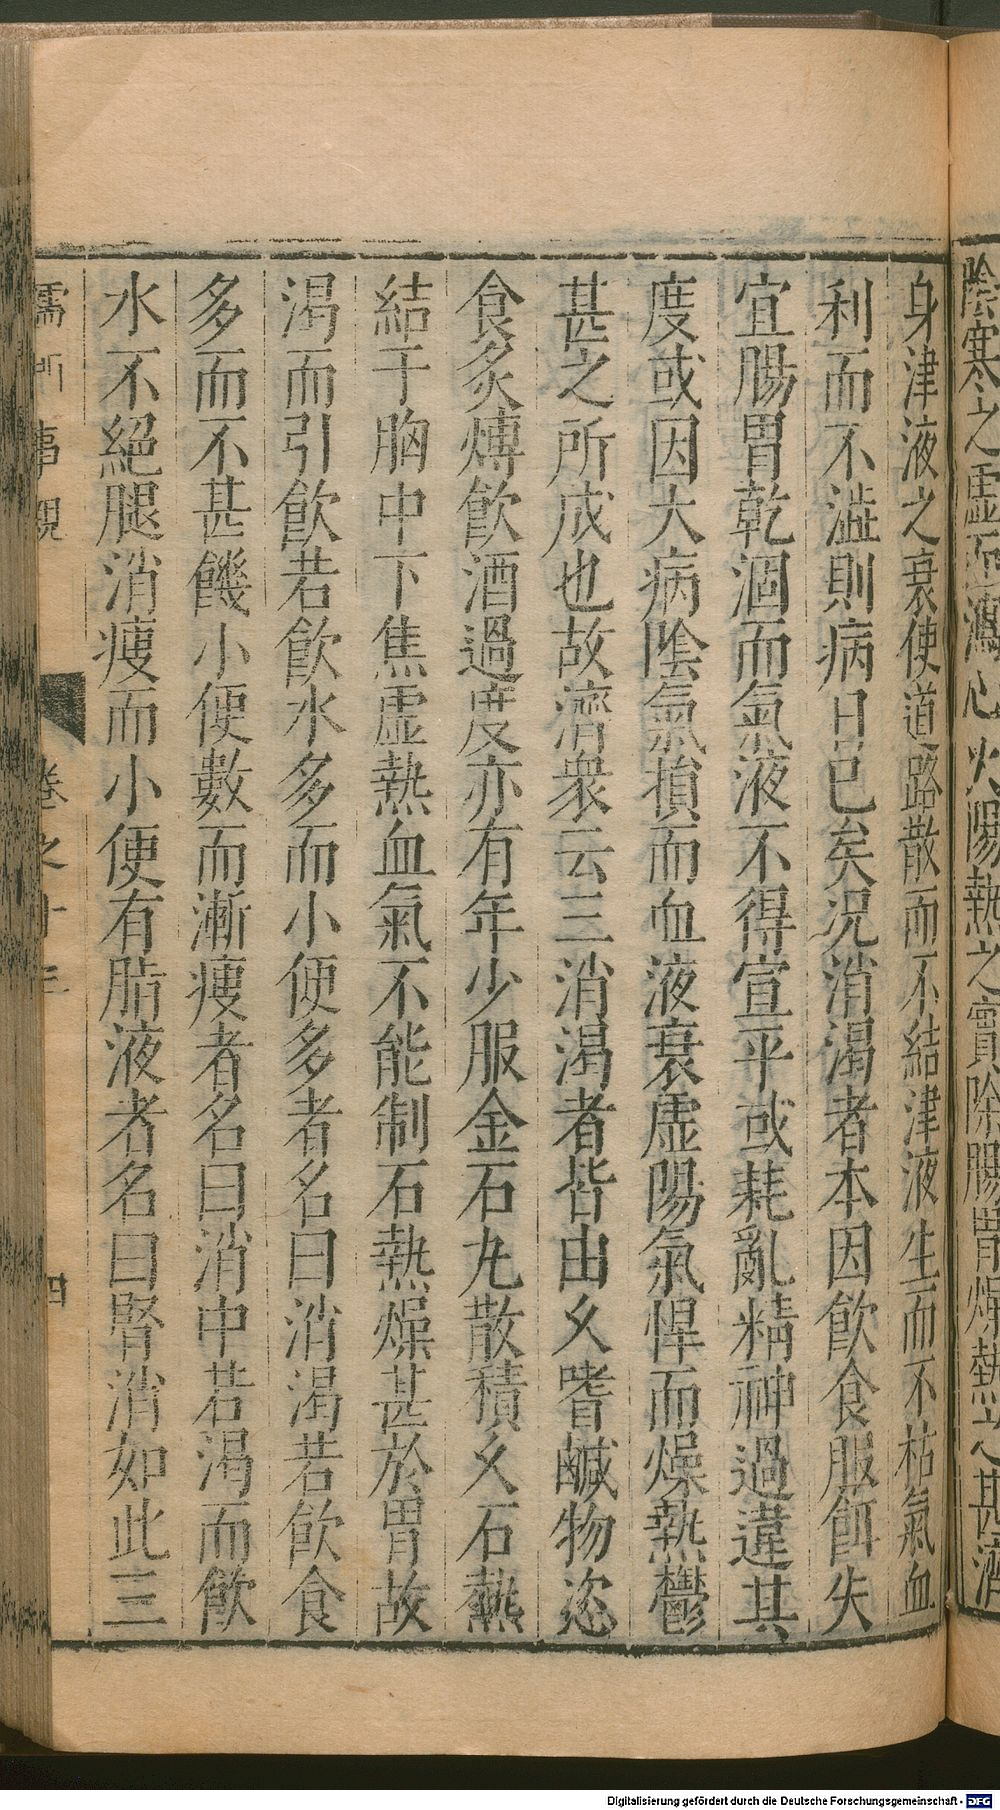 陰寒之虛 瀉心火陽熱之實除腸胃燥熱之甚濟
身津液之衰使道路散而不結津液生而不枯氣血
利而不澁則病日已矣况消渴者本因飲食服餌失
宜腸胃乾涸而氣液不得宣平或耗亂精神過違其
度或因大病陰氣損而血液衰虛陽氣悍而燥熱鬱
甚之所成也故濟衆云三消渴者皆由久嗜鹹物恣
食炙煿飲酒過度亦有年少服金石丸散積久石熱
結于胸中下焦虛熱血氣不能制石熱燥甚於胃故
渴而引飲若飲水多而小便多者名曰消渴若飲食
多而不甚饑小便數而漸瘦者名曰消中若渴而飲
水不絕腿消瘦而小便有脂液者名曰腎消如此三
儒 事親 卷之十三 四
Digitalisierung gefördert durch die Deutsche Forschungsgemeinschaft - DFG